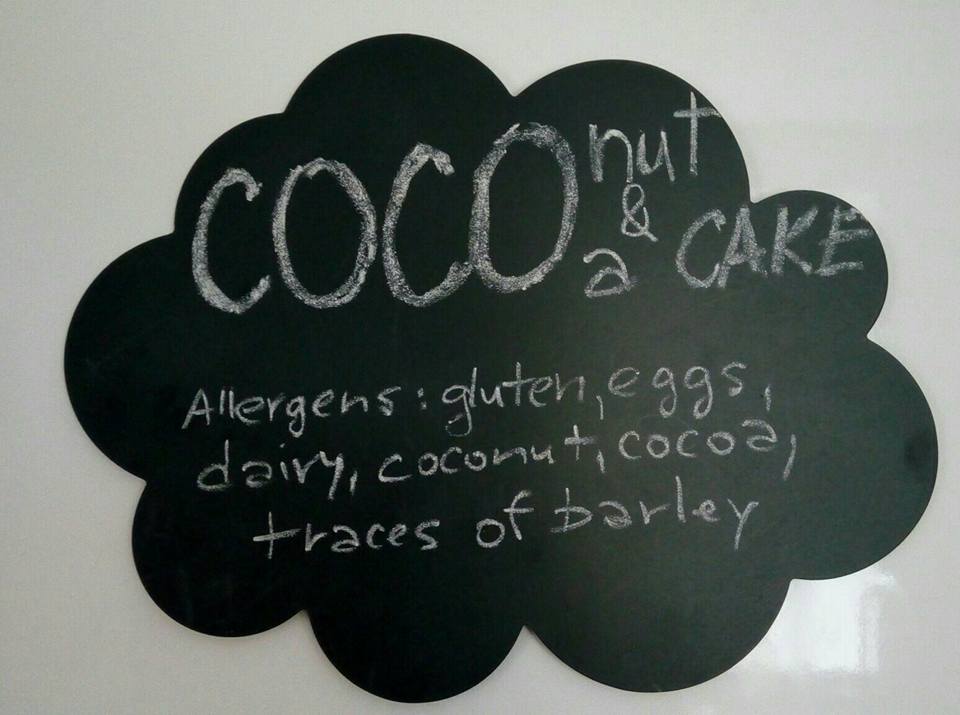 COCOnut
& a CAKE
Allergens: gluten, eggs,
dairy, coconut, cocoa,
traces of barley